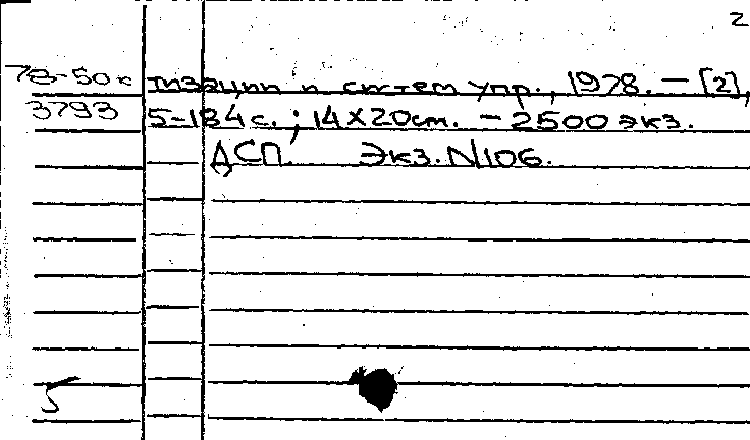 2
78-50к тизации и систем упр., 1978. — [2],
3793 5-184 с. ; 14X20см. — 2500 экз.
ДСП. Экз. N106.
5